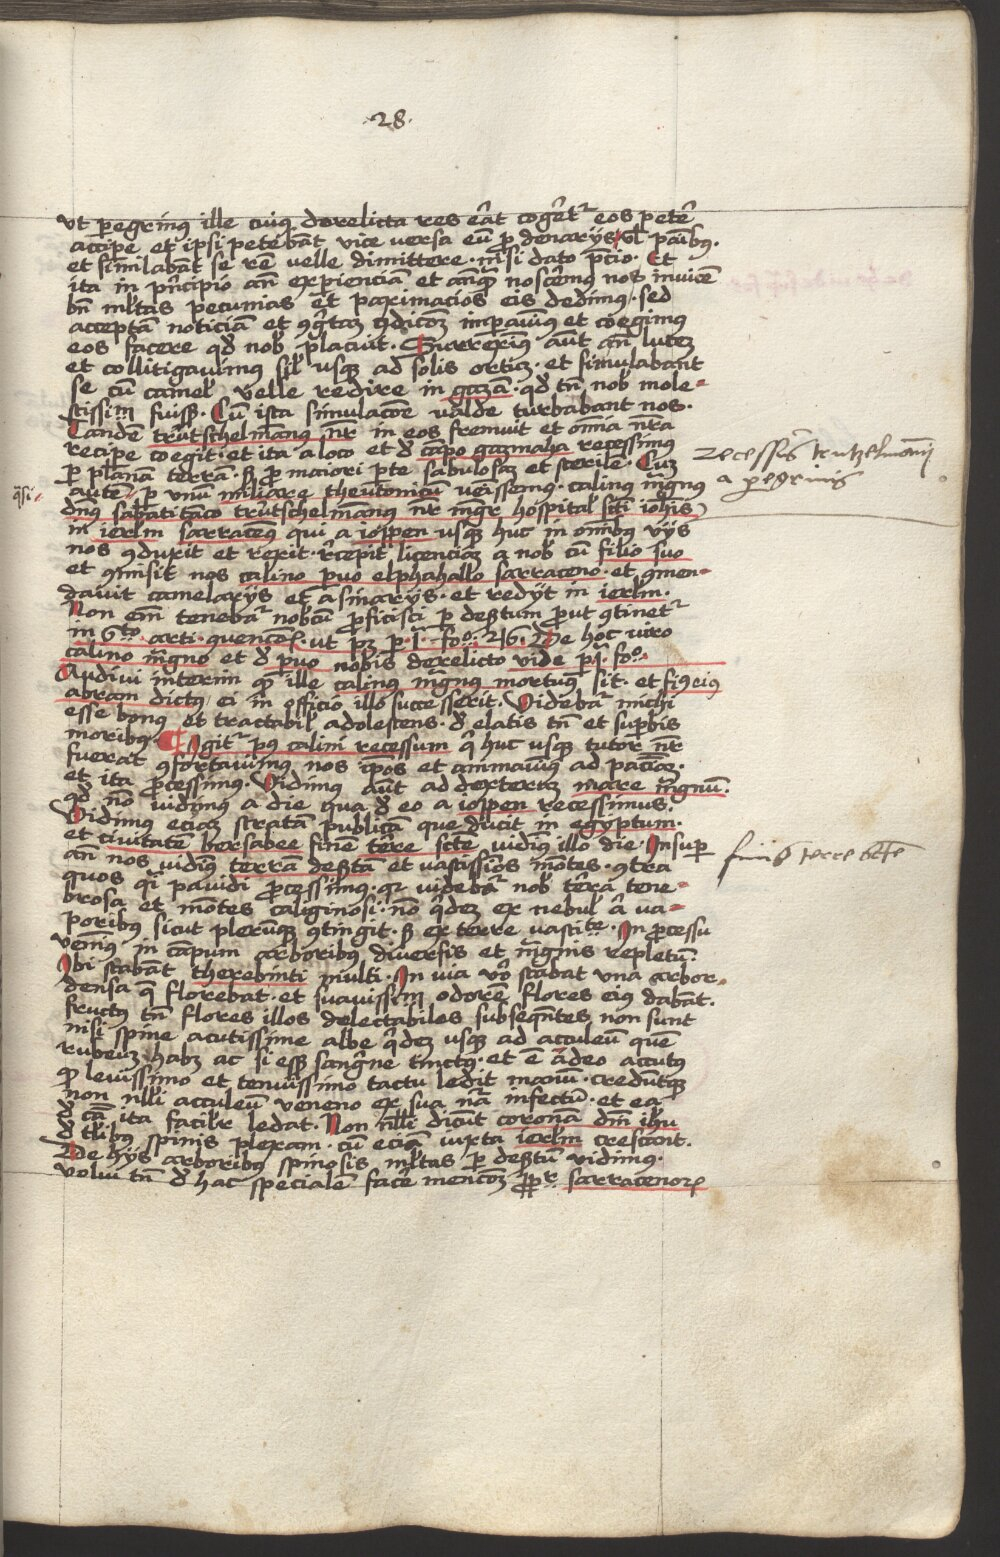 ·28·
vt peregrinus ille cuius derelicta res erat cogeretur eos petere
accipe et ipsi petebant vice versa eum pro denariis vel panibus.
et similabant se rem velle dimittere. nisi dato precio. Et
ita in principio an experienciam et antequam nosceremus nos invicem
bn multas pecunias et paximacios eis dedimus. sed
acceptam noticiam et
et coegimus
eos facere quod nob placuit. Surreximus aut an lucem
et collitigavimus sil usque ad solis ortum. et simulabant
se cum camel velle redire in gazam. quod tn nob mole-
stissim fuisset. Cum ista simulacione valde turbabant nos.
Tandem trutschelmannus nr in eos fremuit et omnia nra
recipe coegit. et ita a loco et de campo gazmaha recessimus
per planam terram. sed pro maiori parte sabulosam et sterilem. Cum
autem qsi per unum miliare theutonicum venissemus. calinus mgnus
dns sabatitanco trutschelmannus nr mgr hospital scti iohis
in ierlm sarracenus qui a ioppen usque huc in omnibus viis
nos conduxit et rexit. recepit licenciam a nob cum filio suo
et commisit nos calino parvo elphahallo sarraceno. et commen-
davit camelariis et asinariis. et rediit in ierlm.
Non enim tenebatur nobcum proficisci per desertum prout continetur
in 6to arti. ut
216. De hoc viro
calino magno et de parvo nobis derelicto vide
fo.
Audivi interim quod ille calinus magnus mortuus sit. et filius eius
abram dictus ei in officio illo successerit. Videbatur michi
esse bonus et tractabil adolescens. de elatis tn et superbis
moribus. Igitur post calini recessum qui huc usque tutor nr
fuerat confortavimus nos ipsos et animavimus ad pacienciam.
et ita processimus. Vidimus aut ad dexteram mare magnum.
quod non vidimus a die qua de eo a ioppen recessimus.
Vidimus eciam stratam publicam que ducit in egyptum.
et civitatem bersabee finem terre scte vidimus illo die. Insuper
an nos vidimus terram desertam et vastissimos montes. contra
quos quasi pavidi processimus. quia videbatur nob terra tene-
brosa et montes caliginosi. non quidem ex nebul aut va-
poribus sicut plerumque contingit. sed ex terre vastitate. In processu
venimus in campum arboribus diversis et magnis repletum.
Ibi stabant therebinti multi. In via vero stabat una arbor
densa que florebat. et suavissimum odorem flores eius dabant.
fructus tn flores illos delectabiles subsequentes non sunt
nisi spine acutissime albe quidem usque ad acculeum quem
rubeum habent ac si esset sanguine tinctus. et est adeo accutus
quod levissimo et tenuissimo tactu ledit manum. creduntque
non nulli acculeum veneno ex sua natura infectum. et ea
de causa ita faciliter ledat. Non nulli dicunt coronam dni ihu
de talibus spinis plexam. cum eciam iuxta ierlm crescant.
De hiis arboribus spinosis multas per desertum vidimus.
volui tn de hac specialem facere mencionem propter sarracenorum
recessus trutzelmanni
a peregrinis
finis terre scte